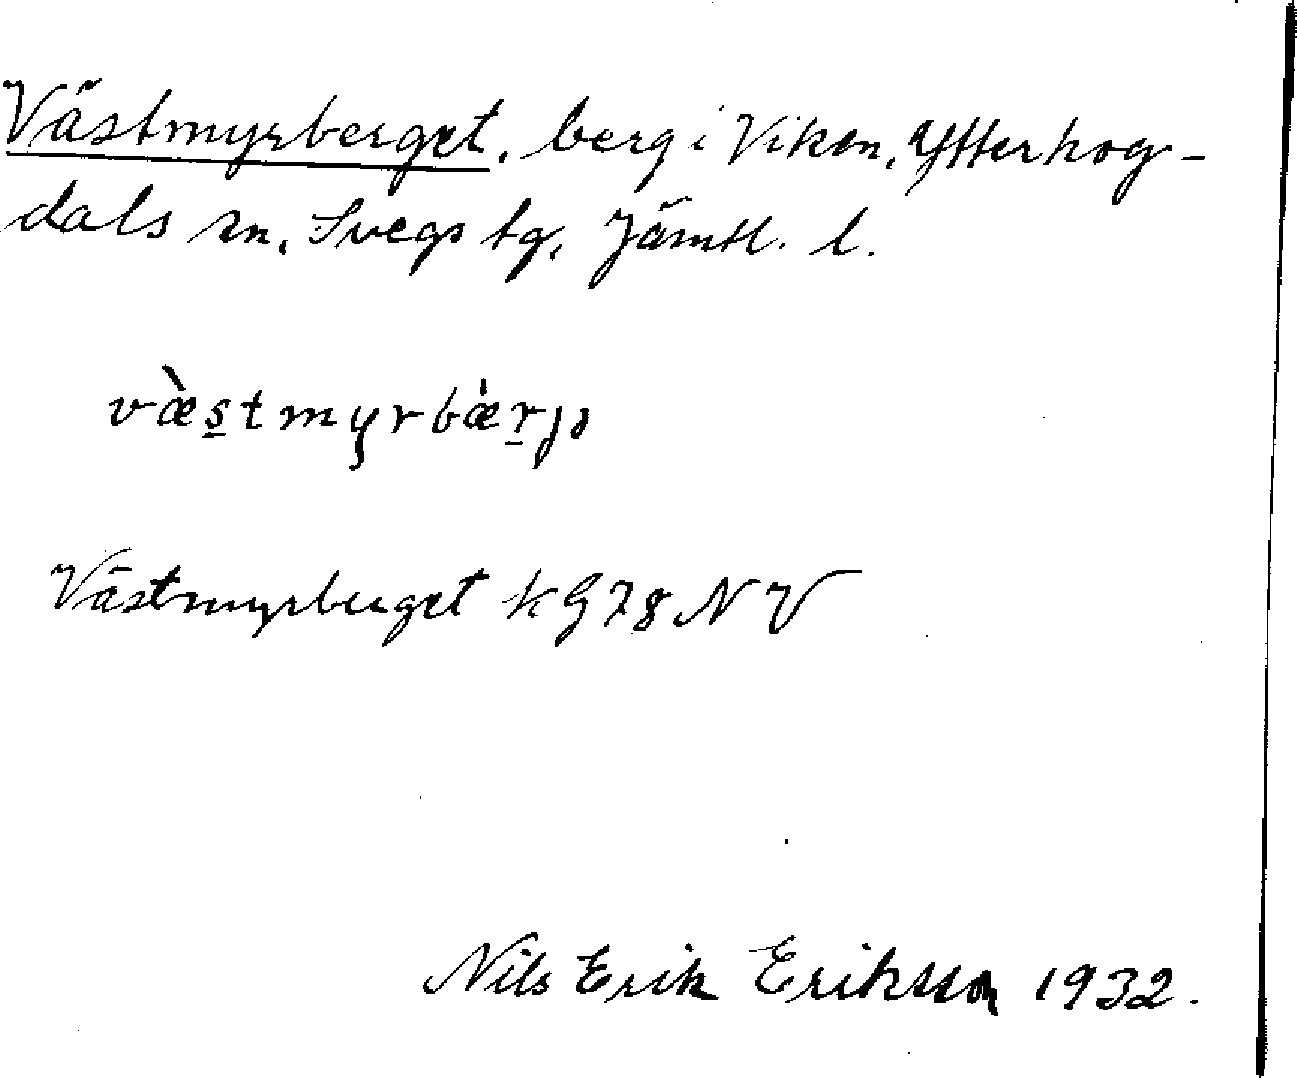 Västmyrberget, berg i Viken, Ytterhog-
dals sn, Svegs tg, Jämtl. l.
væ̀s̱tmyrbæ̍ṟjə
Västmyrberget kG78NV
Nils Erik Eriksson 1932.